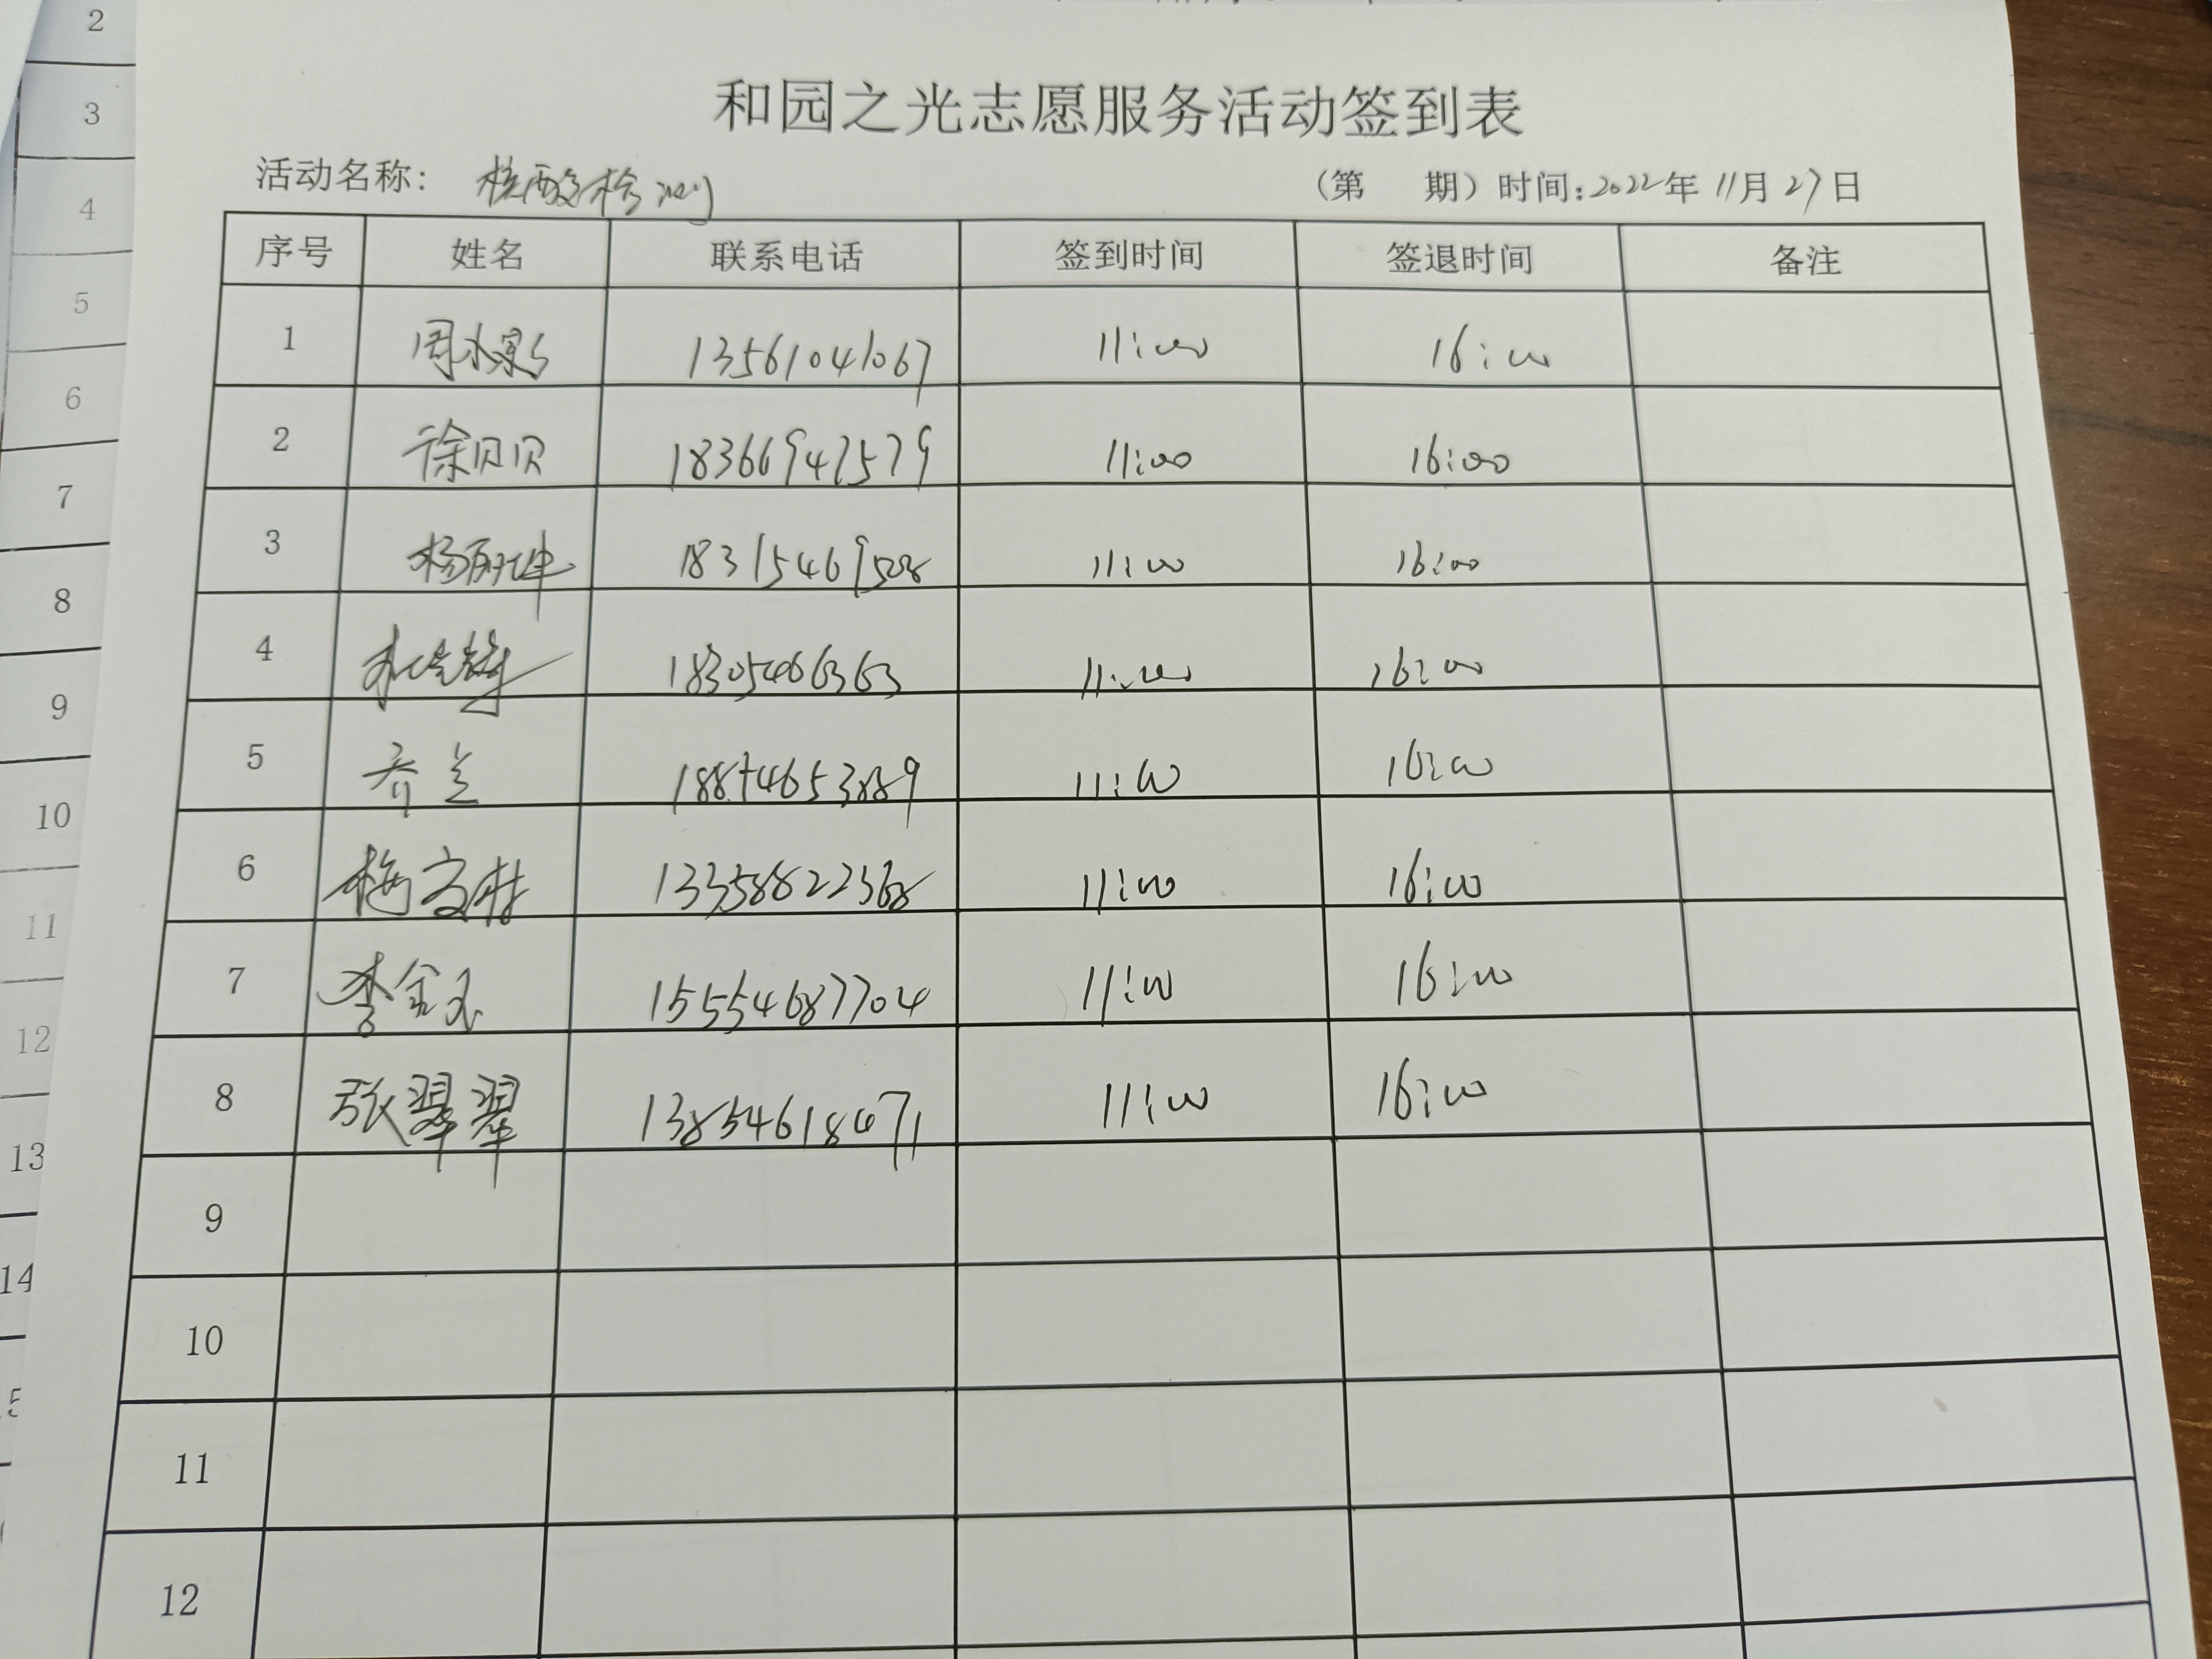 和园之光志愿服务活动签到表
活动名称: 核酸检测 (第 期) 时间:2022年11月27日
序号 姓名 联系电话 签到时间 签退时间 备注
1 周小影 13561041067 11:00 16:00
2 徐贝贝 18366947579 11:00 16:00
3 杨丽坤 18315469508 11:00 16:00
4 18305466363 11:00 16:00
5 齐兰 11:00 16:00
6 梅文村 13358822368 11:00 16:00
7 李金玉 15554687704 11:00 16:00
8 张翠翠 13854618471 11:00 16:00
9
10
11
12
2
3
4
5
6
7
8
9
10
11
12
13
14